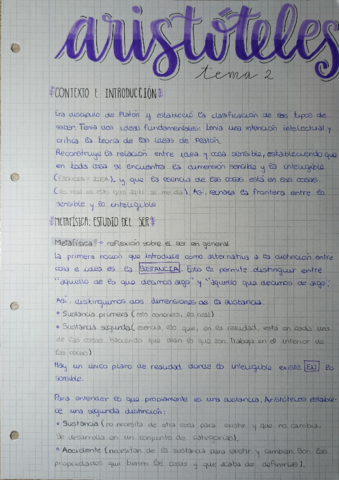 aristóteles
tema 2
CONTEXTO E INTRODUCCIÓN
Era discípulo de Platón y estableció la clasificación de los tipos de
Tenía dos ideas fundamentales: tenía una intención intelectual y
critica la teoría de las ideas de Platón.
Reconstruye la relación entre idea y cosa sensible, estableciendo que
en toda cosa se encuentra la dimensión sensible y la inteligible
y que la esencia de las cosas está en las cosas
Así, elimina la frontera entre lo
sensible y lo inteligible
METAFÍSICA: ESTUDIO DEL SER
Metafísica = reflexión sobre el ser en general
La primera noción que introduce como alternativa a la distinción entre
cosa e idea es la SUSTANCIA. Esta le permite distinguir entre
"aquello de lo que decimos algo" y "aquello que decimos de algo".
Así distinguimos dos dimensiones de la sustancia:
* Sustancia primera (ser concreto, lo real)
* Sustancia segunda (esencia, lo que, en la realidad, está en cada una
de las cosas, haciendo que sean lo que son, trabaja en el interior de
las cosas)
Hay un único plano de realidad donde lo inteligible existe EN lo
sensible.
Para entender lo que propiamente es una sustancia, Aristóteles estable-
ce una segunda distinción:
* Sustancia (no necesita de otra cosa para existir y que no cambia.
Se desarrolla en un conjunto de categorías).
* Accidente (necesitan de la sustancia para existir y cambian. Son las
propiedades que tienen las cosas y que acaba de definirlas).